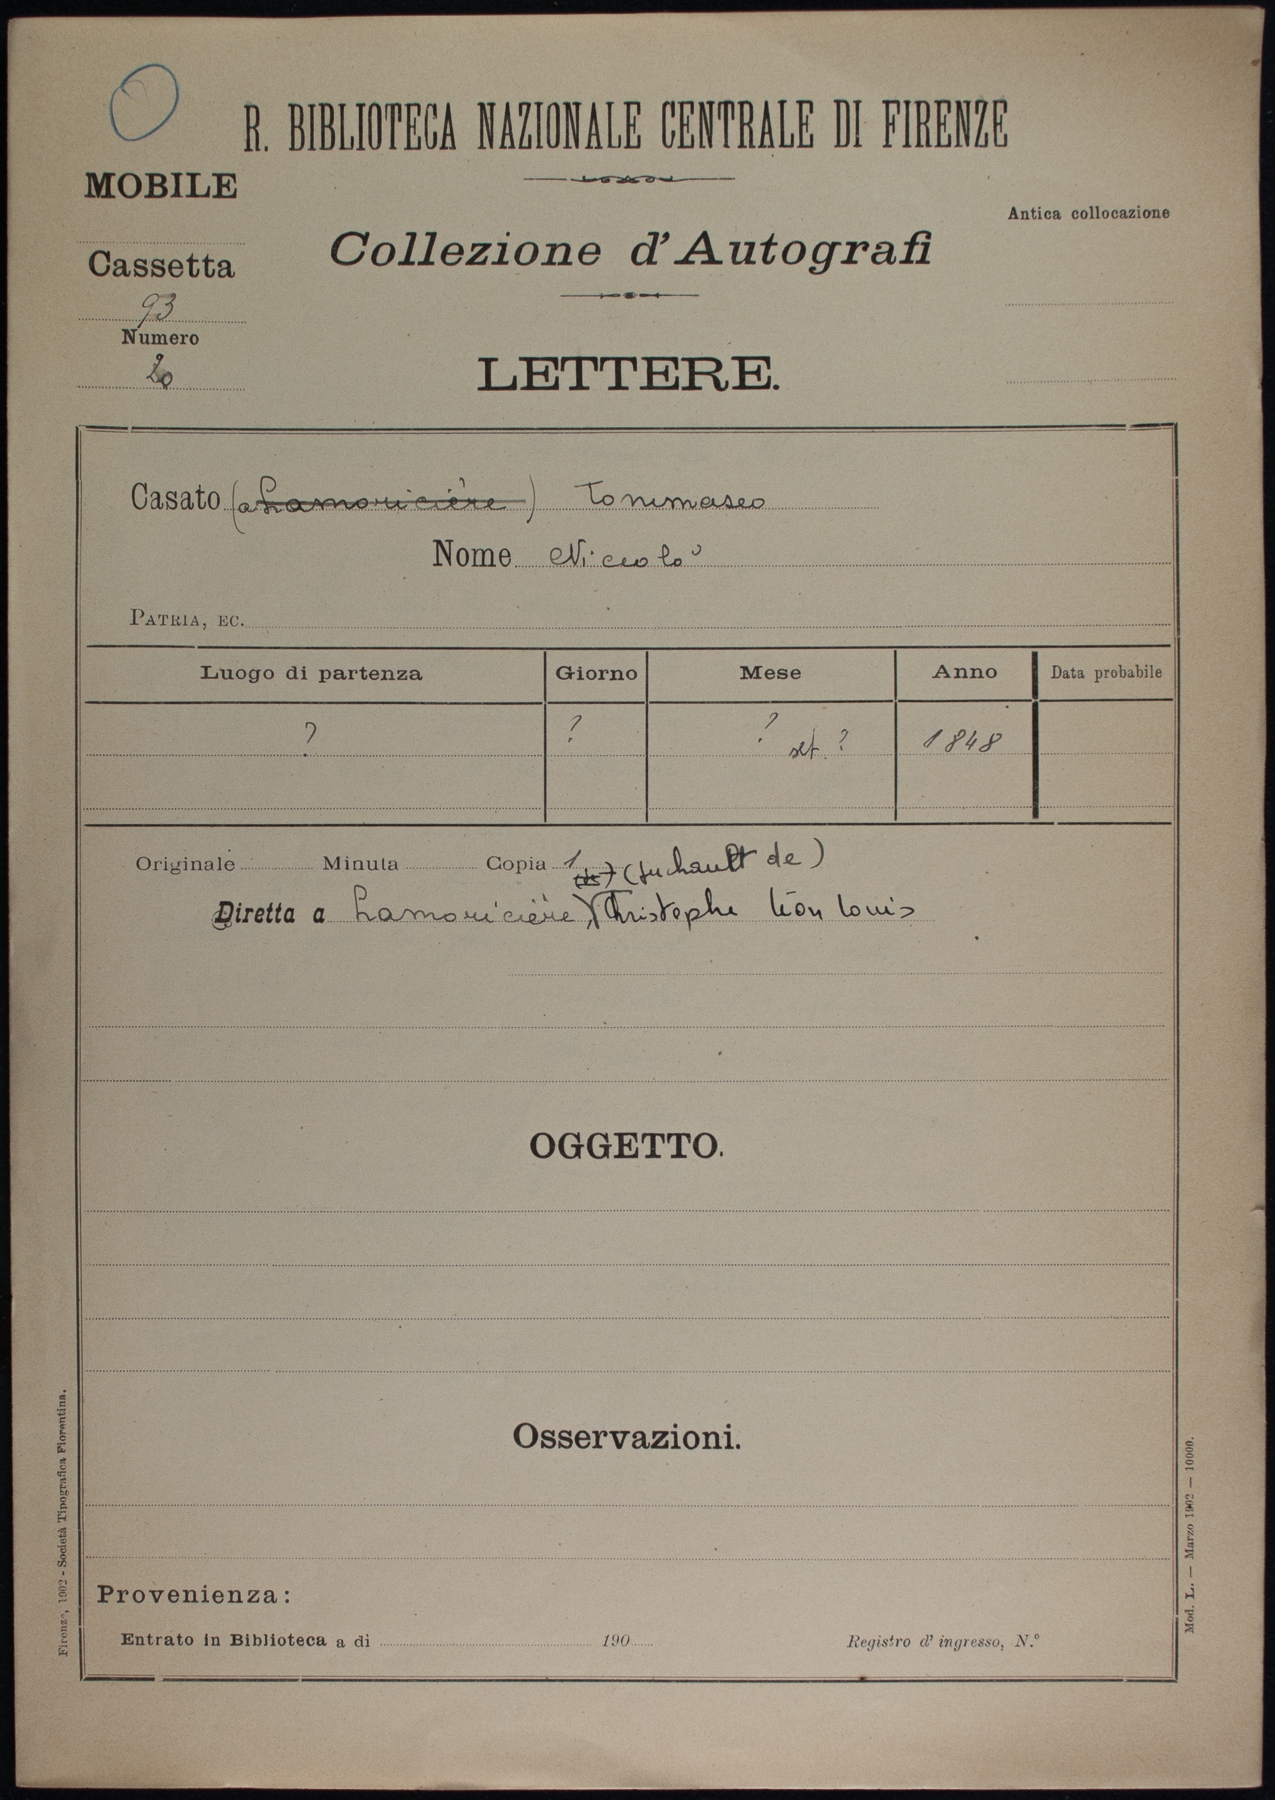 R. BIBLIOTECA NAZIONALE CENTRALE DI FIRENZE
MOBILE
Antica collocazione
Collezione d'Autografi
Cassetta
93
Numero
20
LETTERE.
Casato (a Lamoricière) Tommaseo
Nome Niccolò
PATRIA, EC.
Luogo di partenza Giorno Mese Anno Data probabile
? ? ? set. ? 1848
Originale Minuta Copia 1 (de) (Juchault de)
Diretta a Lamoricière) Christophe Léon Louis
OGGETTO.
Osservazioni.
Provenienza:
Entrato in Biblioteca a dì 190 Registro d'ingresso, N.º
Firenze, 1902 - Società Tipografica Fiorentina.
Mod. L. — Marzo 1902 — 10000.